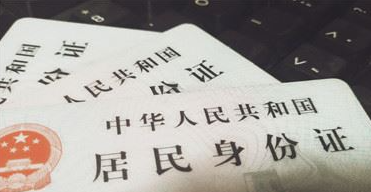 人民共和国
份证
人民共和国
份证
中华人民共和国
居民身份证